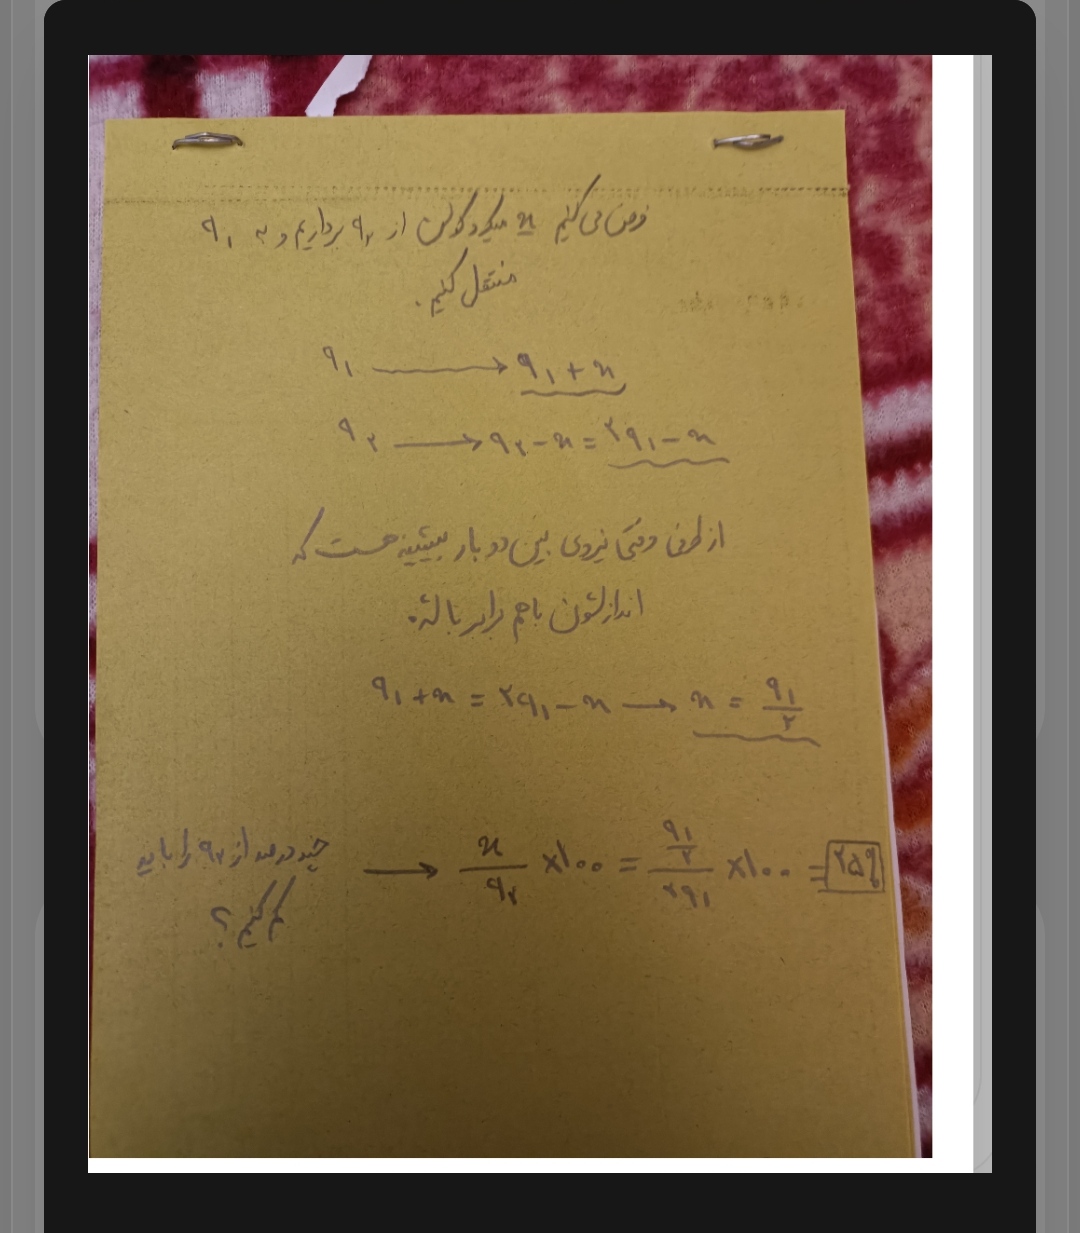 فرض می کنیم x میکروکولن از q₂ برداریم و به q₁
منتقل کنیم.
q₁ ⟶ q₁ + x
q₂ ⟶ q₂ - x = ۲q₁ - x
از طرفی وقتی نیروی بین دو بار بیشینه است که
اندازشون باهم برابر باشه.
q₁ + x = ۲q₁ - x ⟶ x = q₁/۲
چند درصد از q₂ را باید ⟶ x/q₂ ×۱۰۰ = (q₁/۲)/(۲q₁) ×۱۰۰ = ۲۵%
کم کنیم ؟